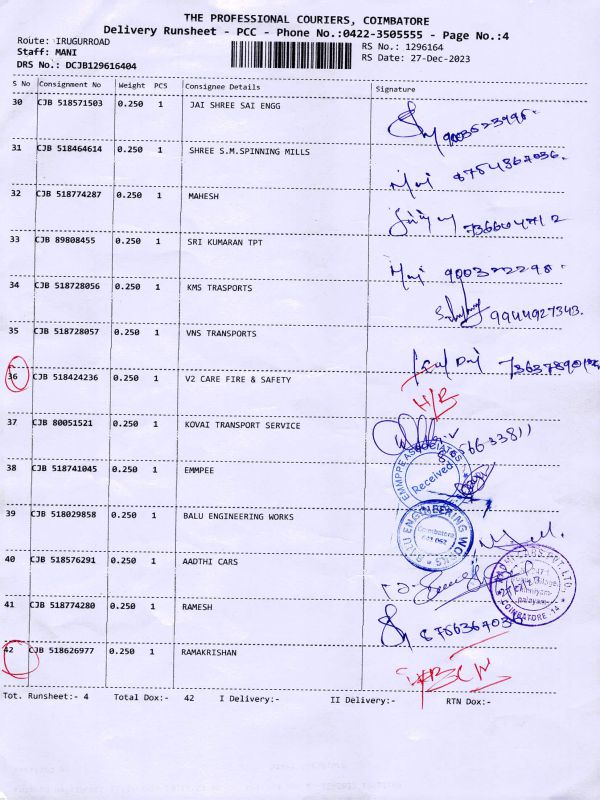 THE PROFESSIONAL COURIERS, COIMBATORE
Delivery Runsheet - PCC - Phone No.:0422-3505555 - Page No.:4
Route: IRUGURROAD
Staff: MANI
DRS No.: DCJB129616404
RS No.: 1296164
RS Date: 27-Dec-2023
S No Consignment No Weight PCS Consignee Details Signature
30 CJB 518571503 0.250 1 JAI SHREE SAI ENGG
31 CJB 518464614 0.250 1 SHREE S.M.SPINNING MILLS
32 CJB 518774287 0.250 1 MAHESH
33 CJB 89808455 0.250 1 SRI KUMARAN TPT
Mani 9003222298
34 CJB 518728056 0.250 1 KMS TRASPORTS
9944927343.
35 CJB 518728057 0.250 1 VNS TRANSPORTS
36 CJB 518424236 0.250 1 V2 CARE FIRE & SAFETY
H/R
37 CJB 80051521 0.250 1 KOVAI TRANSPORT SERVICE
38 CJB 518741045 0.250 1 EMMPEE
EMMPPE ASSOCIATES
Received
39 CJB 518029858 0.250 1 BALU ENGINEERING WORKS
BALU ENGINEERING WORKS
Coimbatore
40 CJB 518576291 0.250 1 AADTHI CARS
COIMBATORE. 14
41 CJB 518774280 0.250 1 RAMESH
42 CJB 518626977 0.250 1 RAMAKRISHAN
Tot. Runsheet:- 4 Total Dox:- 42 I Delivery:- II Delivery:- RTN Dox:-